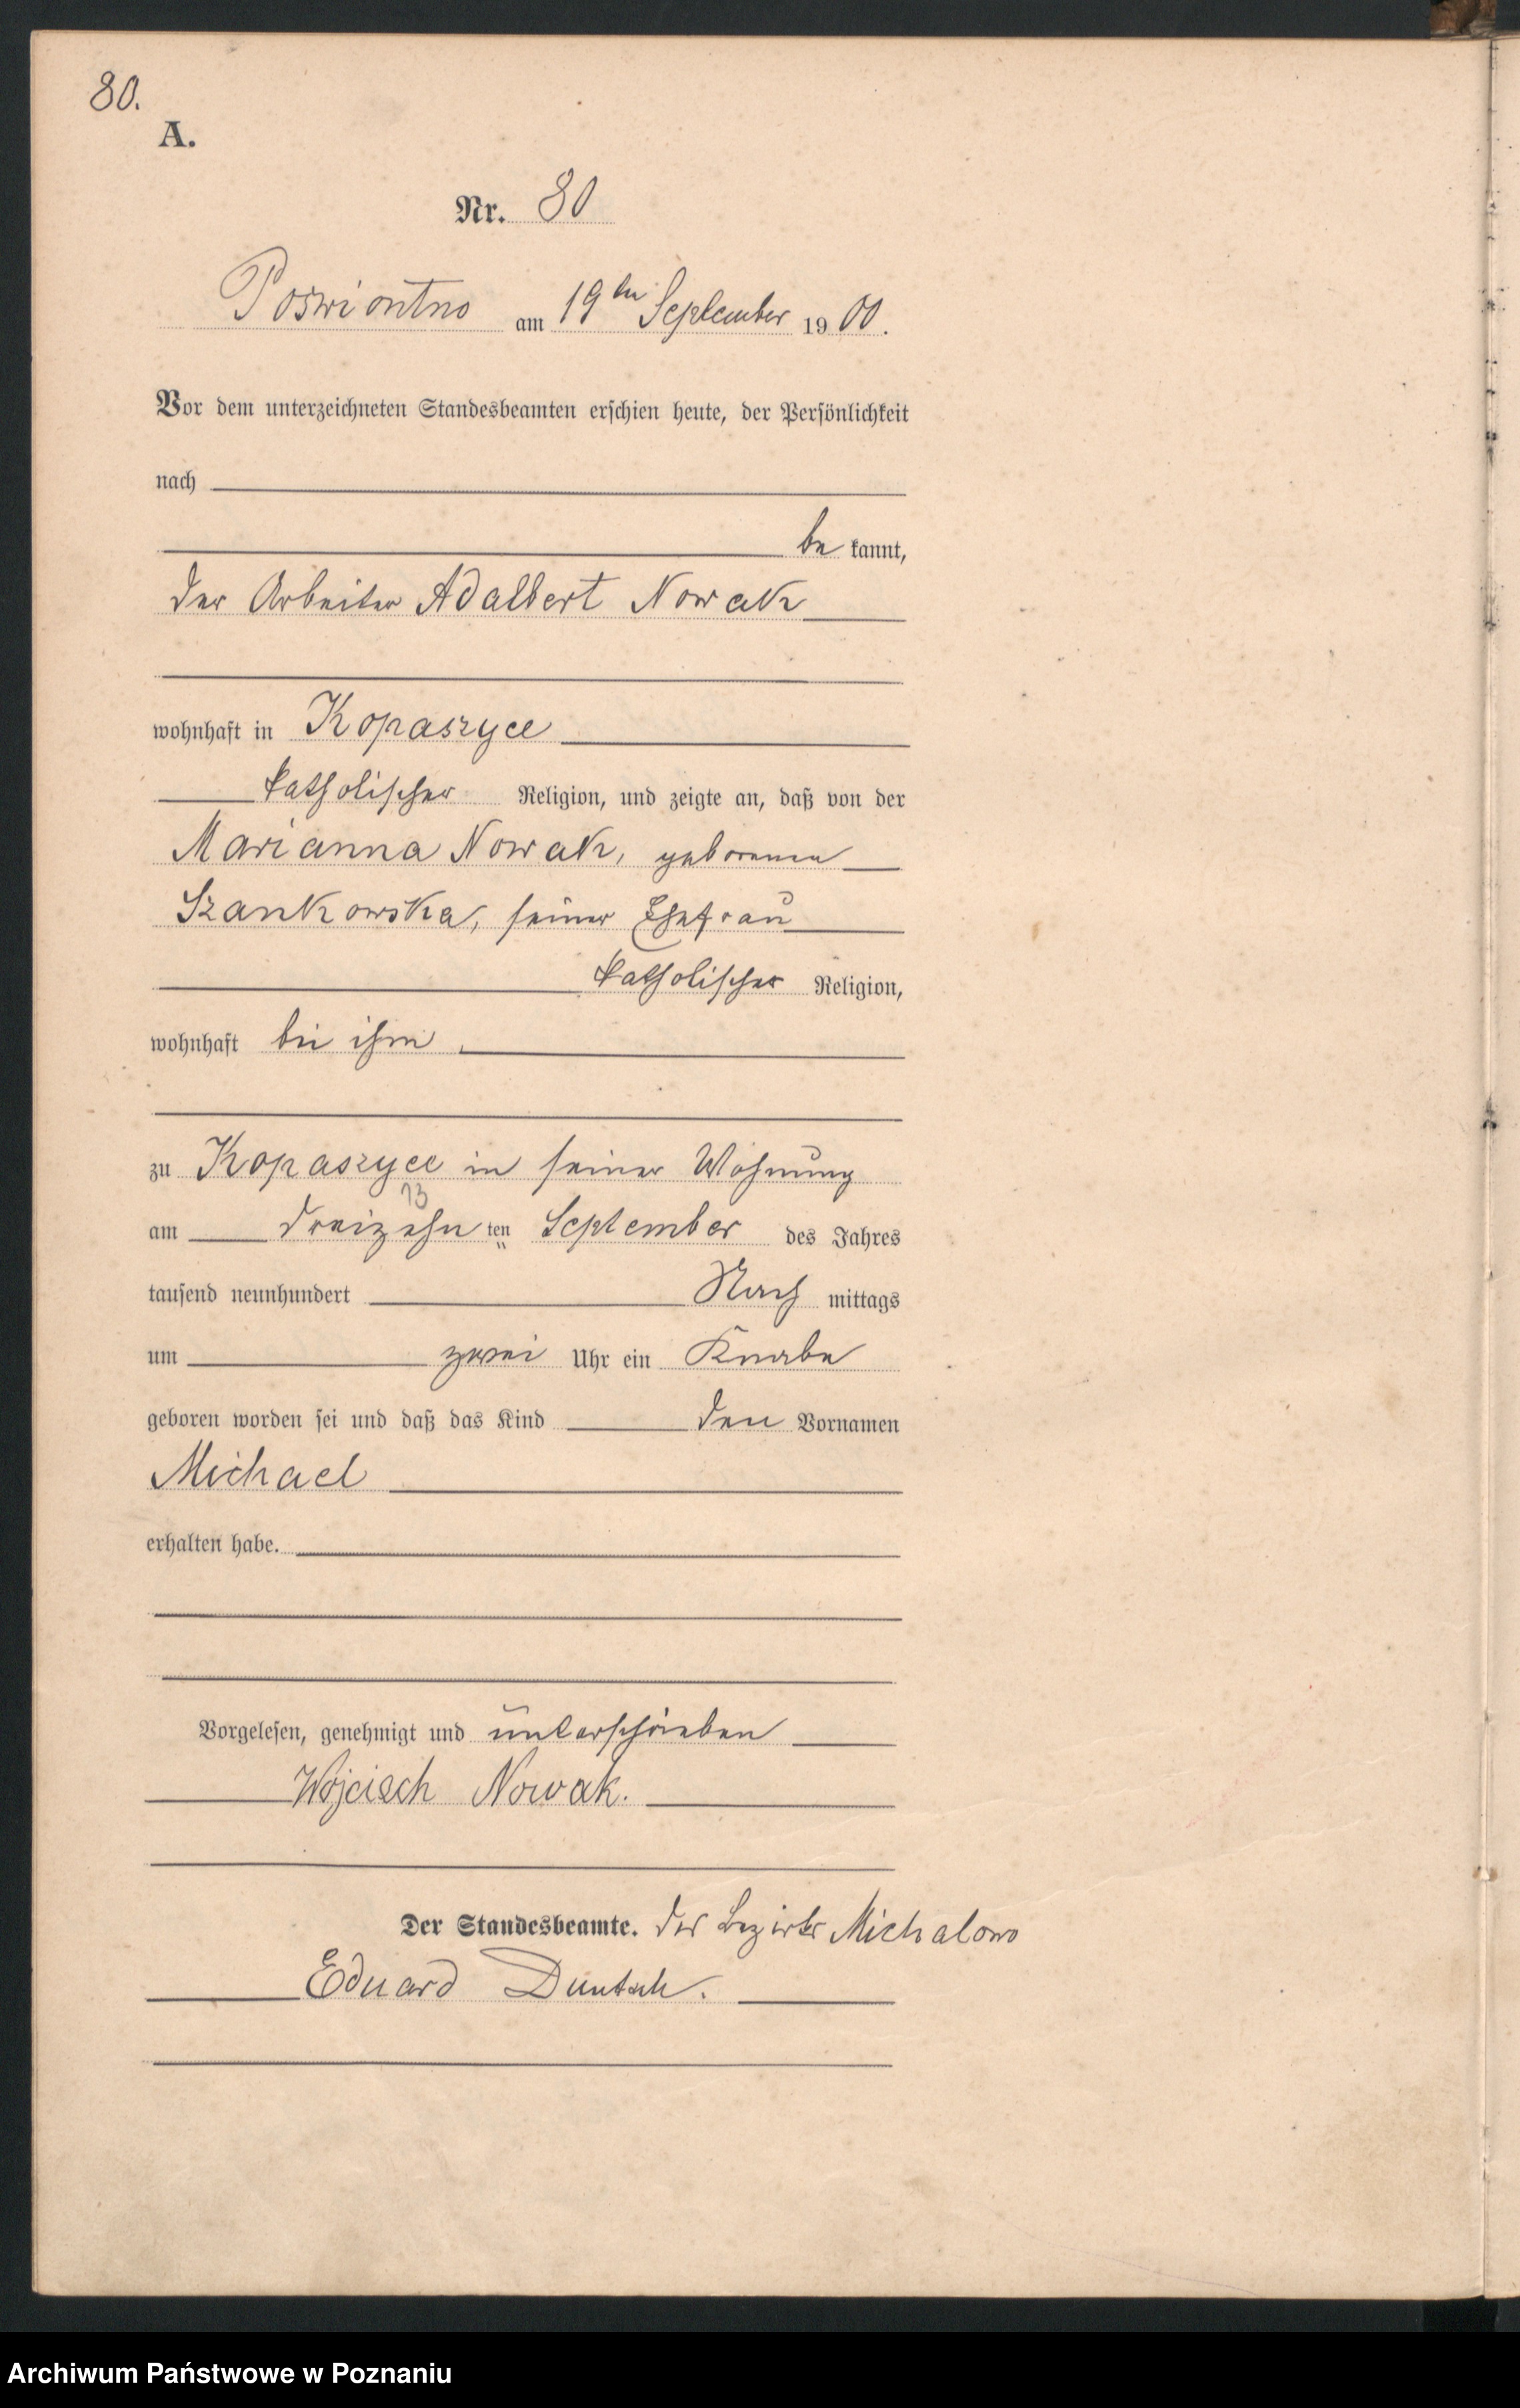 80.
A.
Nr. 80
Poswiontno am 19ten September 1900.
Vor dem unterzeichneten Standesbeamten erschien heute, der Persönlichkeit
nach
be kannt,
der Arbeiter Adalbert Nowak
wohnhaft in Kopaszyce
katholischer Religion, und zeigte an, daß von der
Marianna Nowak, geborenen
Szankowska, seiner Ehefrau
katholischer Religion,
wohnhaft bei ihm
zu Kopaszyce in seiner Wohnung
13
am dreizehn ten September des Jahres
tausend neunhundert Nach mittags
um zwei Uhr ein Knabe
geboren worden sei und daß das Kind den Vornamen
Michael
erhalten habe.
Vorgelesen, genehmigt und unterschrieben
Wojciech Nowak.
Der Standesbeamte. des Bezirks Michalowo
Eduard
Archiwum Państwowe w Poznaniu